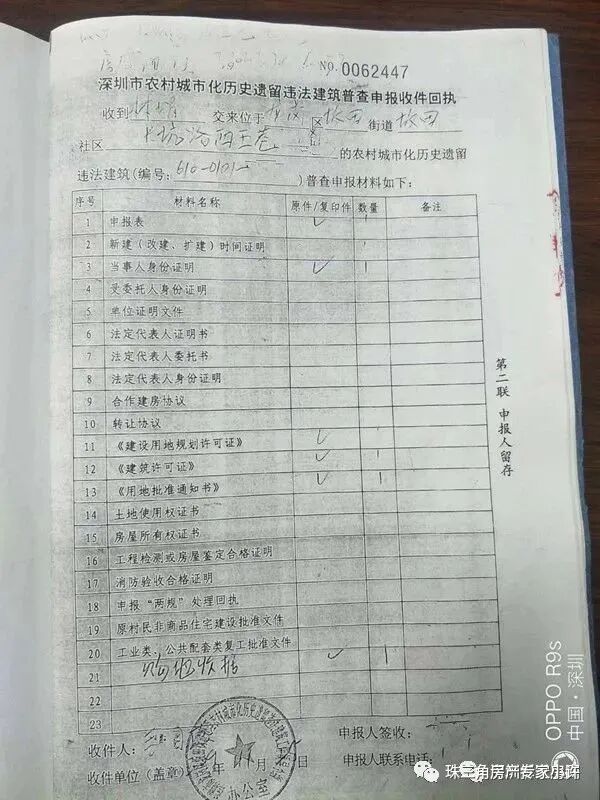 NO.0062447
深圳市农村城市化历史遗留违法建筑普查申报收件回执
收到 交来位于 区 坂田 街道 坂田
社区 的农村城市化历史遗留
违法建筑(编号: 610-0101- )普查申报材料如下:
序号 材料名称 原件/复印件 数量 备注
1 申报表 ✓ 1
2 新建(改建、扩建)时间证明
3 当事人身份证明 ✓ 1
4 受委托人身份证明
5 单位证明文件
6 法定代表人证明书
7 法定代表人委托书
8 法定代表人身份证明
9 合作建房协议
10 转让协议
11 《建设用地规划许可证》 ✓
12 《建筑许可证》 ✓ 1
13 《用地批准通知书》 ✓ 1
14 土地使用权证书
15 房屋所有权证书
16 工程检测或房屋鉴定合格证明
17 消防验收合格证明
18 申报“两规”处理回执
19 原村民非商品住宅建设批准文件
20 工业类、公共配套类复工批准文件
21 收据 ✓ 1
22
23
收件人: 申报人签收:
收件单位(盖章) 月 日 申报人联系电话:
办公室
第二联 申报人留存
OPPO R9s
中国·深圳
珠三角房产专家